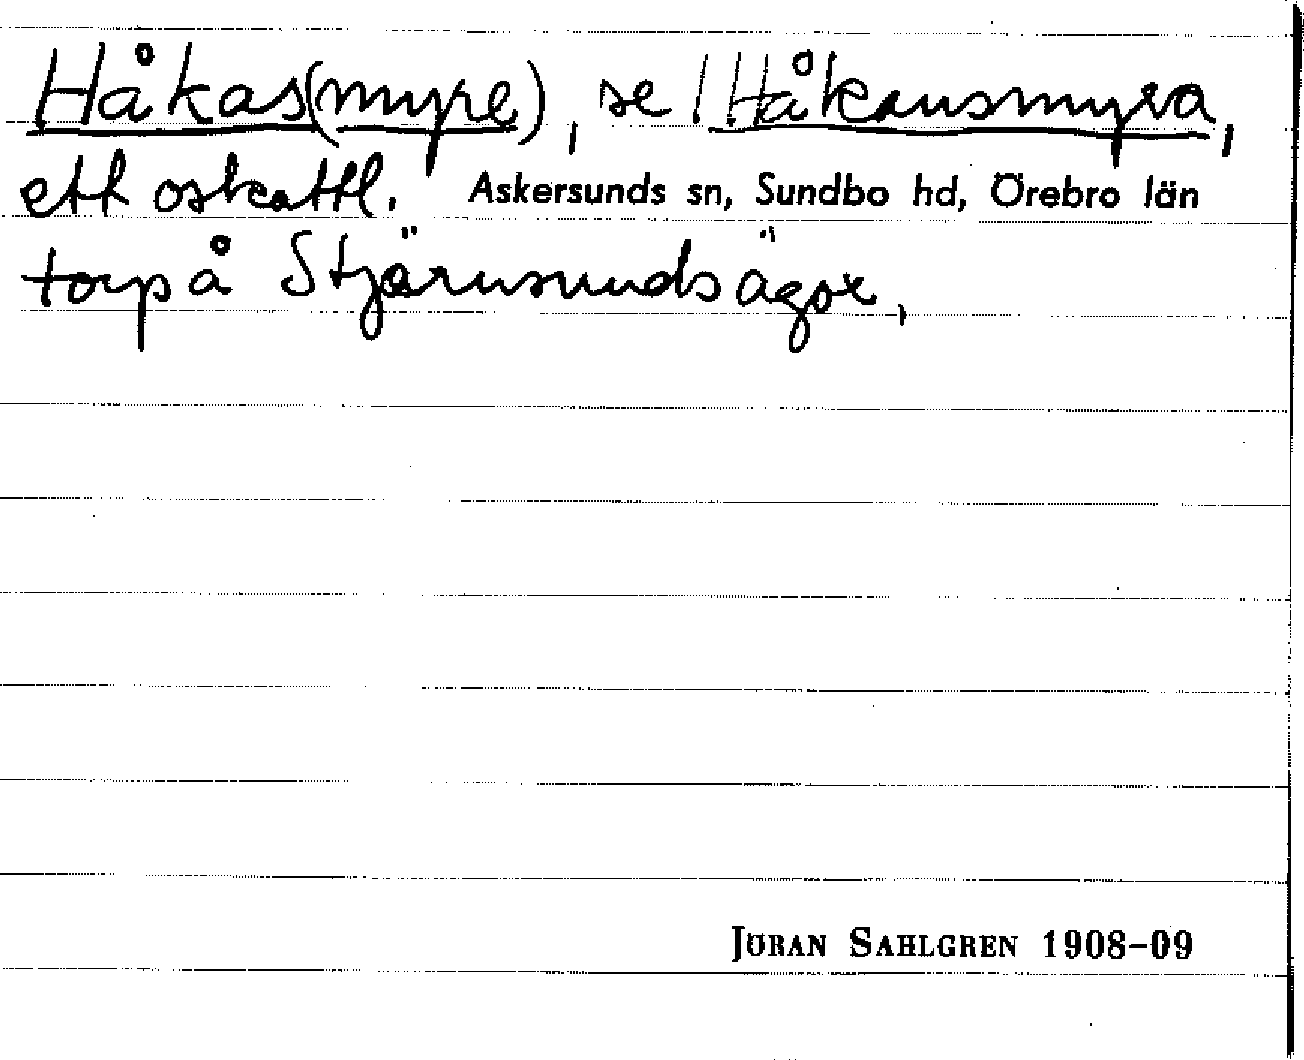 Håkas(myre), se Håkansmyra,
ett oskattl. Askersunds sn, Sundbo hd, Örebro län
torp å Stjärnsunds ägor,
JÖRAN SAHLGREN 1908–09